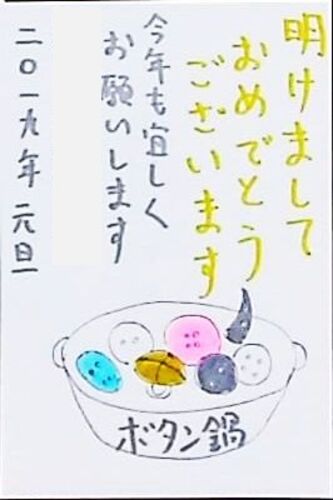 明けまして
おめでとう
ございます
今年も宜しく
お願いします
二〇一九年 元旦
ボタン鍋